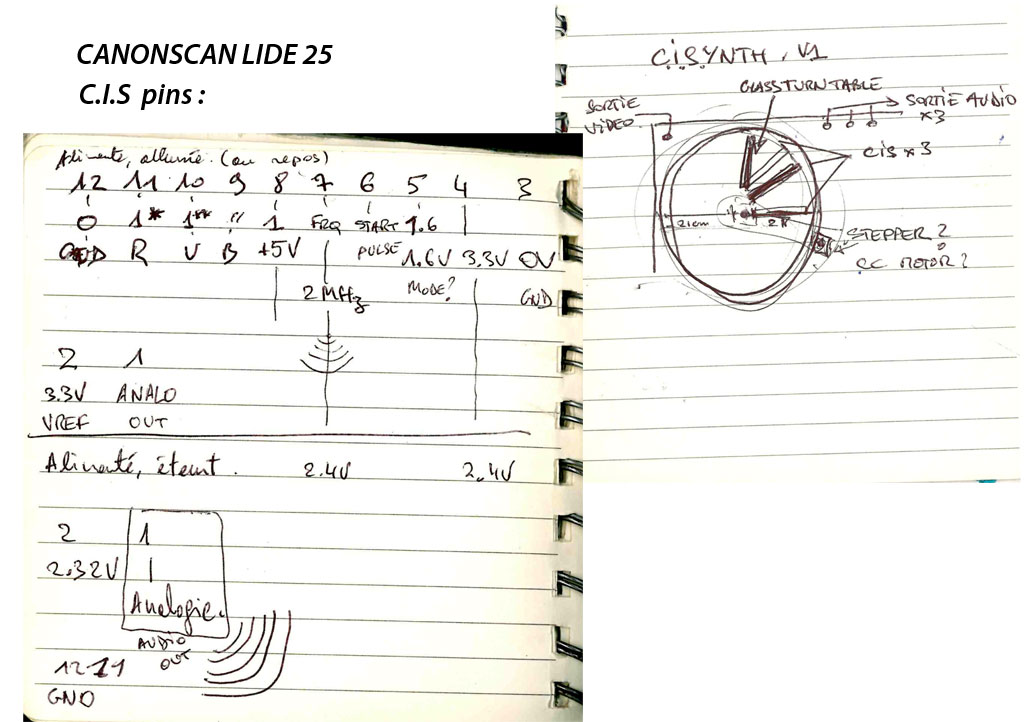 CANONSCAN LIDE 25
C.I.S pins :
Alimenté, allumé. (au repos)
12 11 10 9 8 7 6 5 4 3
0 1* 1** " 1 FRQ START 1.6
R V B +5V PULSE 1.6V 3.3V 0V
2 MHz MODE? GND
2 1
3.3V ANALO
VREF OUT
Alimenté, éteint. 2.4V 2.4V
2 1
2.32V
Analogic.
AUDIO
OUT
12-11
GND
CISYNTH. V1
GLASS TURNTABLE
SORTIE
VIDEO
SORTIE AUDIO
×3
CIS ×3
21cm
STEPPER?
CC MOTOR?